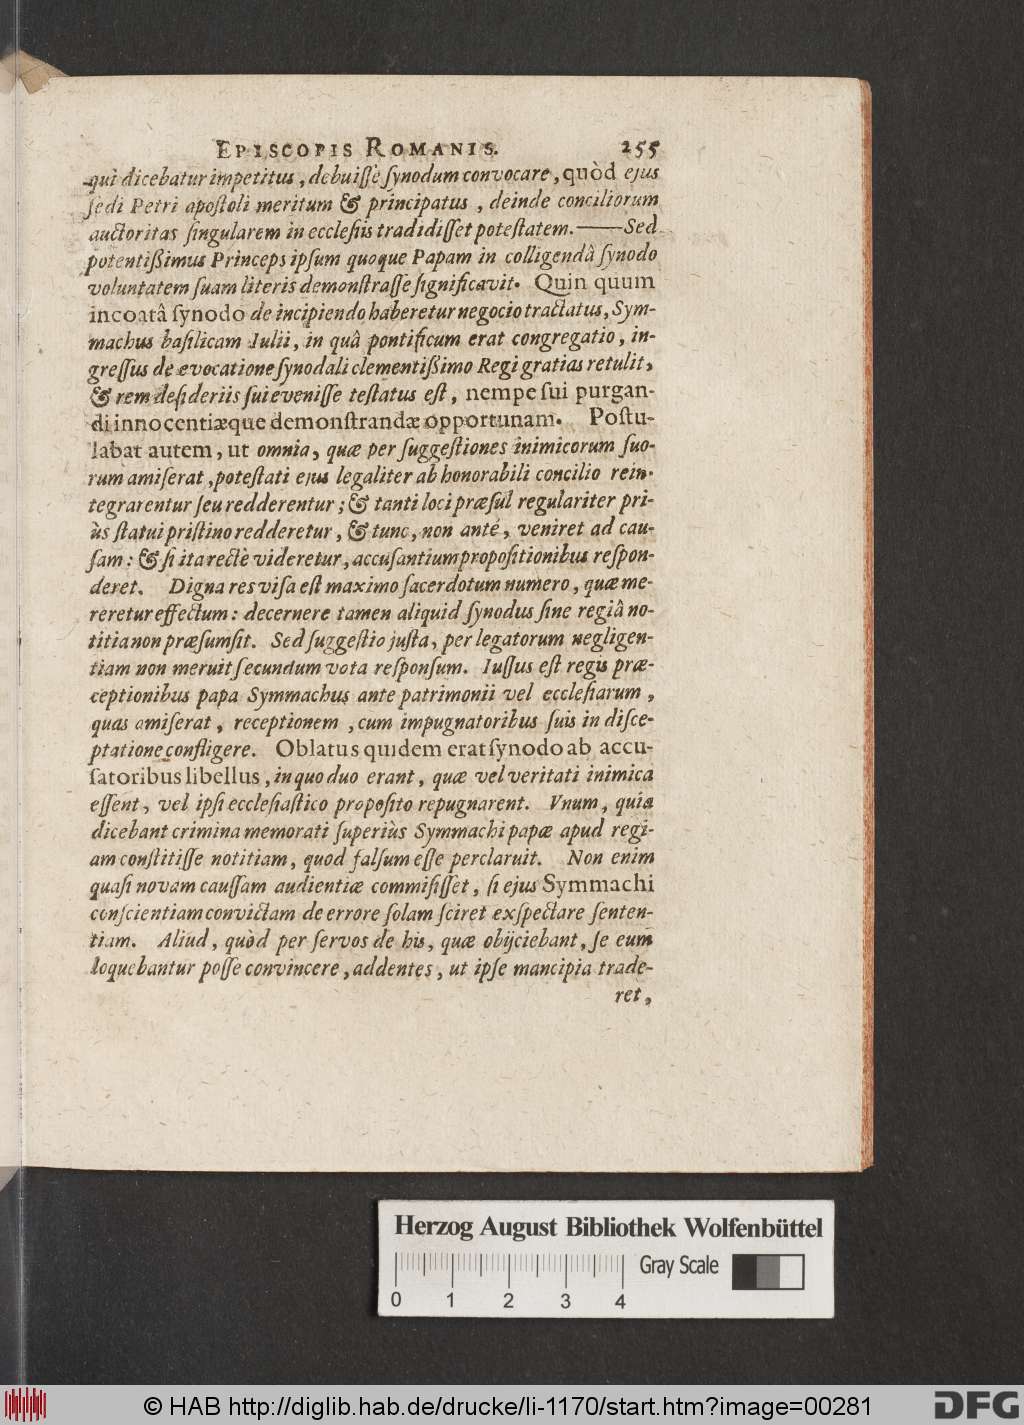 EPISCOPIS ROMANIS. 255
qui dicebatur impetitus, debuisse synodum convocare, quòd ejus
sedi Petri apostoli meritum & principatus, deinde conciliorum
auctoritas singularem in ecclesiis tradidisset potestatem.——Sed
potentißimus Princeps ipsum quoque Papam in colligendâ synodo
voluntatem suam literis demonstrasse significavit. Quin quum
incoatâ synodo de incipiendo haberetur negocio tractatus, Sym-
machus basilicam Iulii, in quâ pontificum erat congregatio, in-
gressus de evocatione synodali clementißimo Regi gratias retulit,
& rem desideriis sui evenisse testatus est, nempe sui purgan-
di innocentiæque demonstrandæ opportunam. Postu-
labat autem, ut omnia, quæ per suggestiones inimicorum suo-
rum amiserat, potestati ejus legaliter ab honorabili concilio rein-
tegrarentur seu redderentur; & tanti loci præsul regulariter pri-
ùs statui pristino redderetur, & tunc, non anté, veniret ad cau-
sam: & si ita rectè videretur, accusantium propositionibus respon-
deret. Digna res visa est maximo sacerdotum numero, quæ me-
reretur effectum: decernere tamen aliquid synodus sine regiâ no-
titia non præsumsit. Sed suggestio justa, per legatorum negligen-
tiam non meruit secundum vota responsum. Iussus est regis præ-
ceptionibus papa Symmachus ante patrimonii vel ecclesiarum,
quas amiserat, receptionem, cum impugnatoribus suis in disce-
ptatione confligere. Oblatus quidem erat synodo ab accu-
satoribus libellus, in quo duo erant, quæ vel veritati inimica
essent, vel ipsi ecclesiastico proposito repugnarent. Vnum, quia
dicebant crimina memorati superiùs Symmachi papæ apud regi-
am constitisse notitiam, quod falsum esse perclaruit. Non enim
quasi novam caussam audientiæ commisisset, si ejus Symmachi
conscientiam convictam de errore solam sciret exspectare senten-
tiam. Aliud, quòd per servos de his, quæ obijciebant, se eum
loquebantur posse convincere, addentes, ut ipse mancipia trade-
ret,
Herzog August Bibliothek Wolfenbüttel
Gray Scale
0 1 2 3 4
© HAB http://diglib.hab.de/drucke/li-1170/start.htm?image=00281
DFG